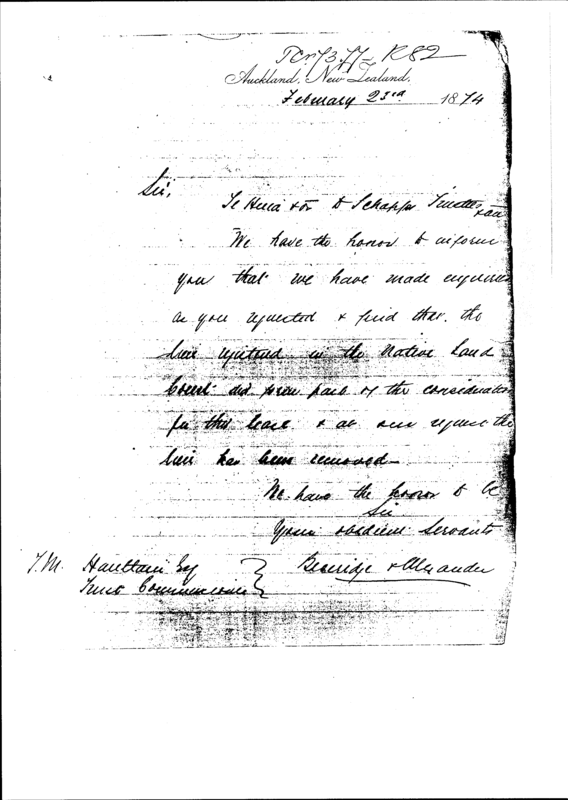 TCr 73.77 - R82
Auckland, New Zealand,
February 23rd 1874
Sir,
Te Hira & ors to Schapps Trustees & an
We have the honor to inform
you that we have made enquiries
as you requested & find that the
lien registered in the Native Land
Court did form part of the consideration
for this lease & at our request the
lien has been removed—
We have the honor to be
Sir
Your obedient Servants
T.M. Haultain Esq } Beveridge & Alexander
Trust Commissioner